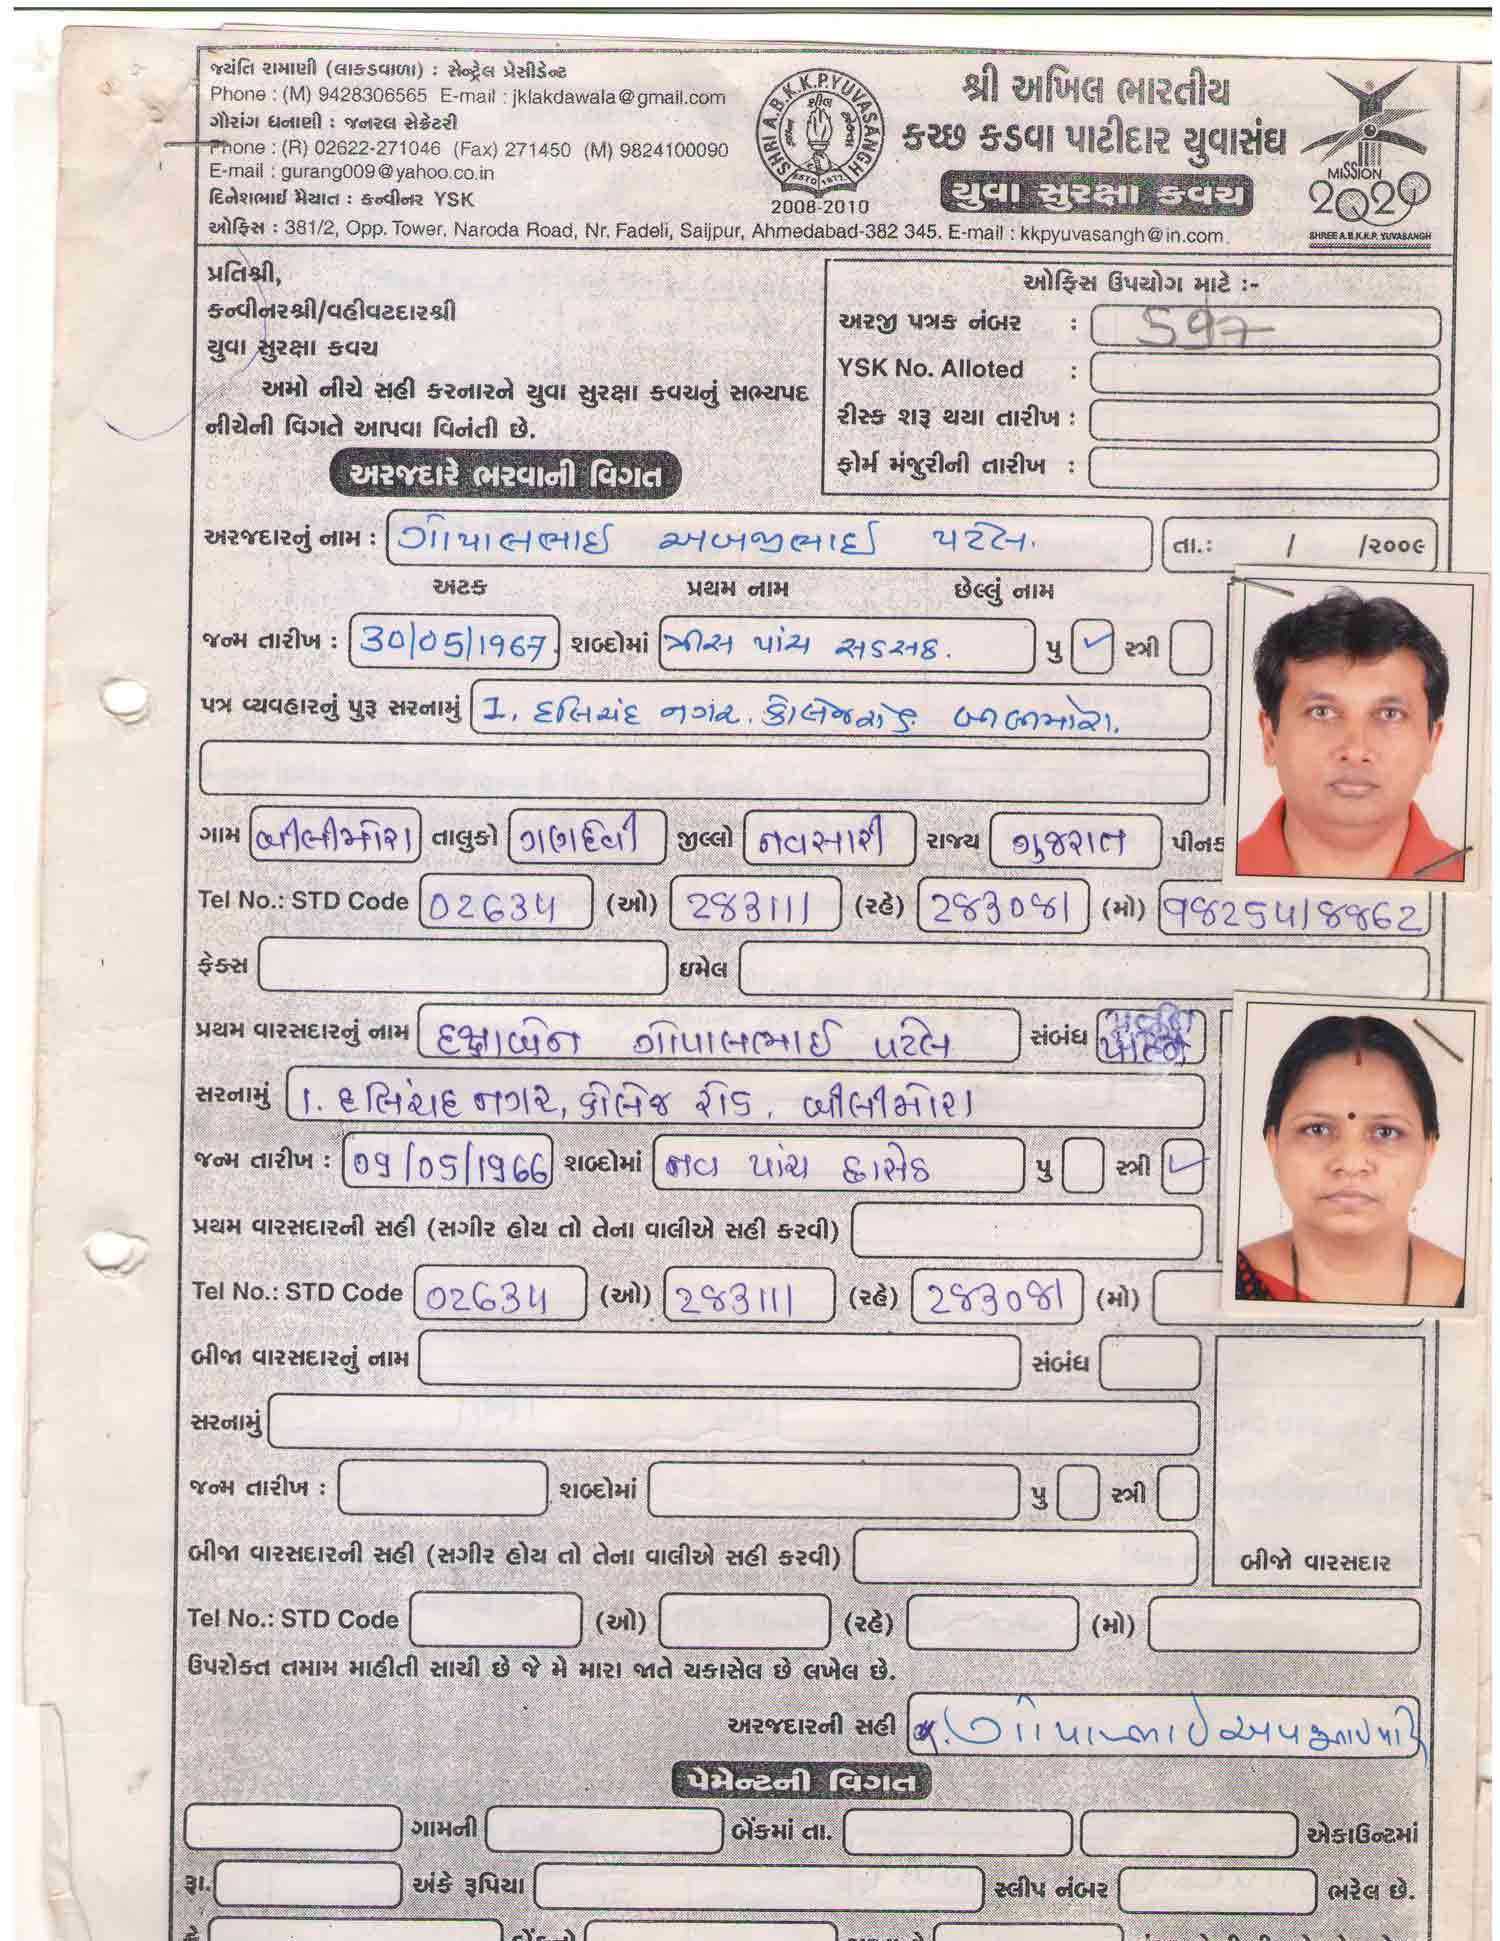 જયંતિ રામાણી (લાકડાવાળા) : સેન્ટ્રેલ પ્રેસીડેન્ટ
Phone : (M) 9428306565 E-mail : jklakdawala@gmail.com
ગૌરાંગ ધનાણી : જનરલ સેક્રેટરી
Phone : (R) 02622-271046 (Fax) 271450 (M) 9824100090
E-mail : gurang009@yahoo.co.in
દિનેશભાઈ મૈયાત : કન્વીનર YSK
SHRI A.B.K.K.P. YUVASANGH
ESTD 1977
2008-2010
શ્રી અખિલ ભારતીય
કચ્છ કડવા પાટીદાર યુવાસંઘ
યુવા સુરક્ષા કવચ
MISSION
2020
SHREE A.B.K.K.P. YUVASANGH
ઓફિસ : 381/2, Opp. Tower, Naroda Road, Nr. Fadeli, Saijpur, Ahmedabad-382 345. E-mail : kkpyuvasangh@in.com.
પ્રતિશ્રી,
કન્વીનરશ્રી/વહીવટદારશ્રી
યુવા સુરક્ષા કવચ
અમો નીચે સહી કરનારને યુવા સુરક્ષા કવચનું સભ્યપદ
નીચેની વિગતે આપવા વિનંતી છે.
ઓફિસ ઉપયોગ માટે :-
અરજી પત્રક નંબર : 597
YSK No. Alloted :
રીસ્ક શરૂ થયા તારીખ :
ફોર્મ મંજુરીની તારીખ :
અરજદારે ભરવાની વિગત
અરજદારનું નામ : ગોપાલભાઈ અબજીભાઈ પટેલ. તા.: / /૨૦૦૯
અટક પ્રથમ નામ છેલ્લું નામ
જન્મ તારીખ : 30/05/1967. શબ્દોમાં ત્રીસ પાંચ સડસઠ. પુ ✓ સ્ત્રી
પત્ર વ્યવહારનું પુરૂ સરનામું 1, દલિચંદ નગર. કોલેજ રોડ બીલીમોરા.
ગામ બીલીમોરા તાલુકો ગણદેવી જીલ્લો નવસારી રાજ્ય ગુજરાત પીનક
Tel No.: STD Code 02634 (ઓ) 283111 (રહે) 283081 (મો) 9825418862
ફેક્સ ઇમેલ
પ્રથમ વારસદારનું નામ દક્ષાબેન ગોપાલભાઈ પટેલ સંબંધ પત્ની
સરનામું 1. દલિચંદ નગર, કોલેજ રોડ, બીલીમોરા
જન્મ તારીખ : 09/05/1966 શબ્દોમાં નવ પાંચ છાસઠ પુ સ્ત્રી ✓
પ્રથમ વારસદારની સહી (સગીર હોય તો તેના વાલીએ સહી કરવી)
Tel No.: STD Code 02634 (ઓ) 283111 (રહે) 283081 (મો)
બીજા વારસદારનું નામ સંબંધ
સરનામું
જન્મ તારીખ : શબ્દોમાં પુ સ્ત્રી
બીજા વારસદારની સહી (સગીર હોય તો તેના વાલીએ સહી કરવી)
બીજો વારસદાર
Tel No.: STD Code (ઓ) (રહે) (મો)
ઉપરોક્ત તમામ માહીતી સાચી છે જે મે મારા જાતે ચકાસેલ છે લખેલ છે.
અરજદારની સહી
પેમેન્ટની વિગત
ગામની બેંકમાં તા. એકાઉન્ટમાં
રૂા. અંકે રૂપિયા સ્લીપ નંબર ભરેલ છે.